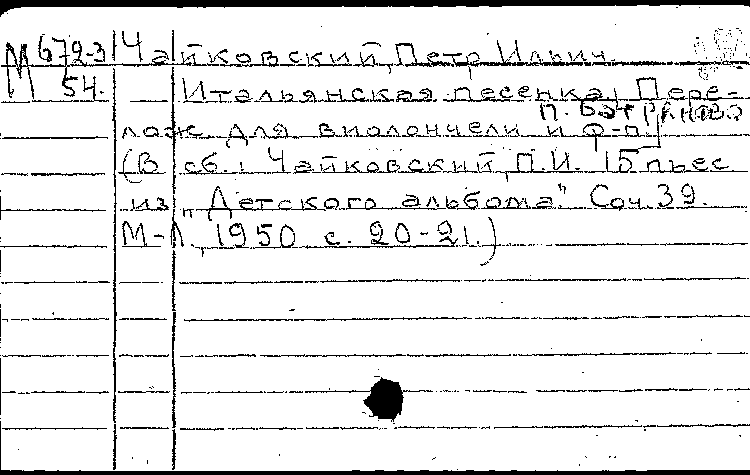 М 672-3 Чайковский, Петр Ильич.
54. Итальянская песенка, Пере-
лож. для виолончели и ф-п.
(В сб.: Чайковский, П.И. 15 пьес
из „Детского альбома." Соч. 39.
М-Л., 1950 с. 20-21.)